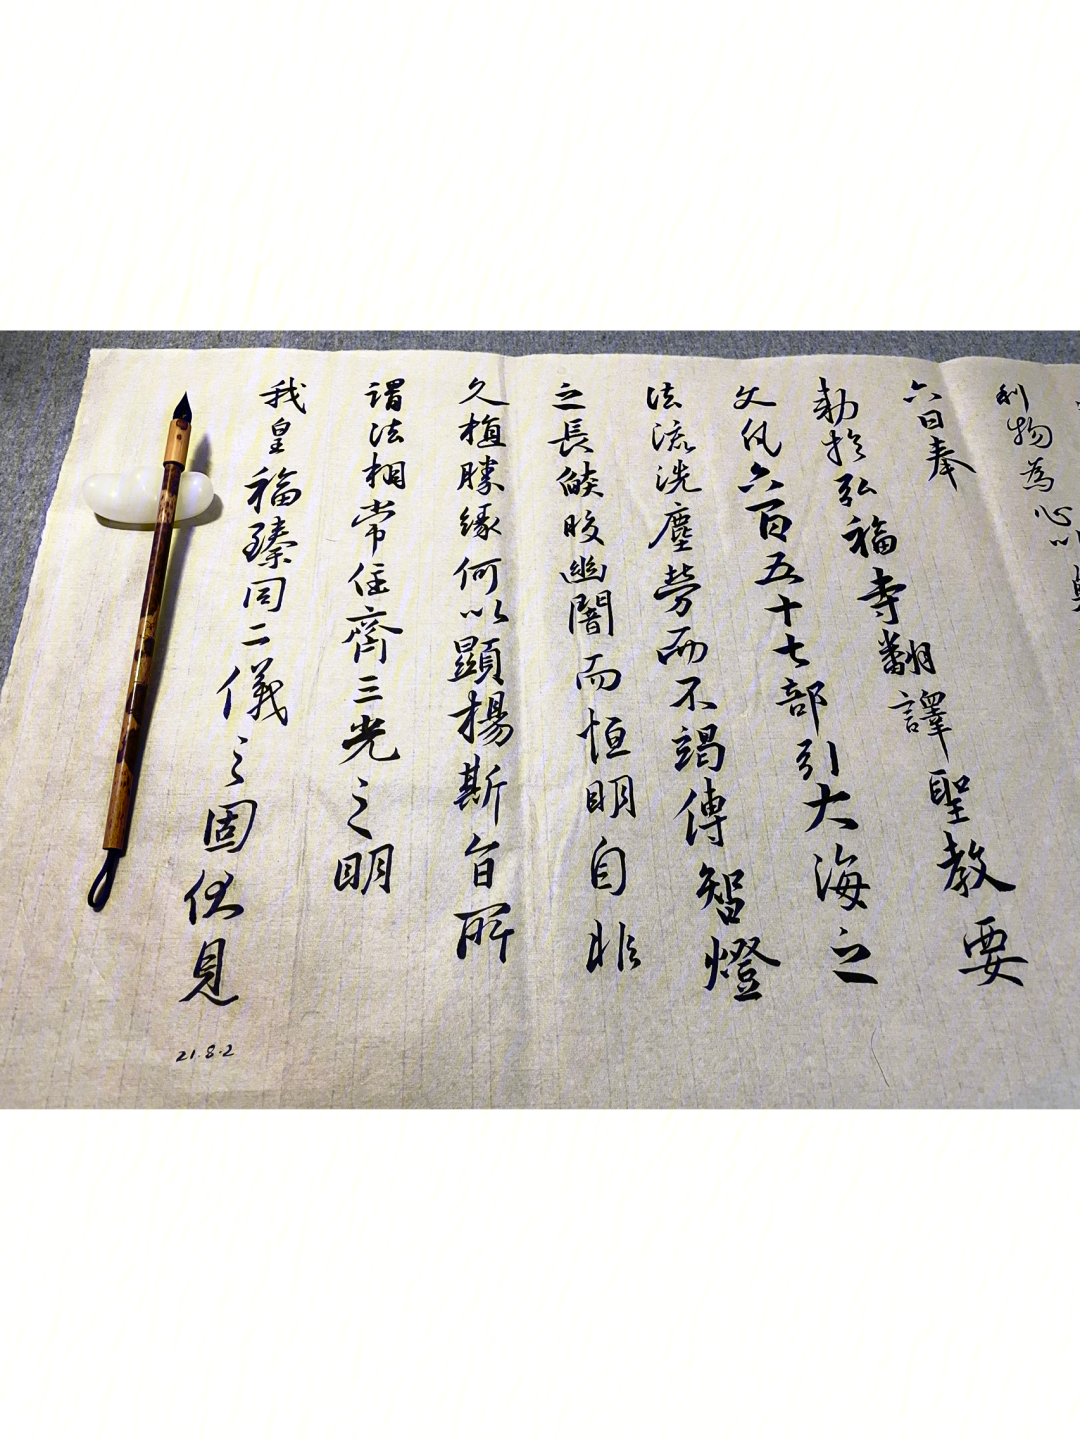 利物為心以
六日奉
勅於弘福寺翻譯聖教要
文凡六百五十七部引大海之
法流洗塵勞而不竭傳智燈
之長燄皎幽闇而恒明自非
久植勝緣何以顯揚斯旨所
謂法相常住齊三光之明
我皇福臻同二儀之固伏見
21.8.2